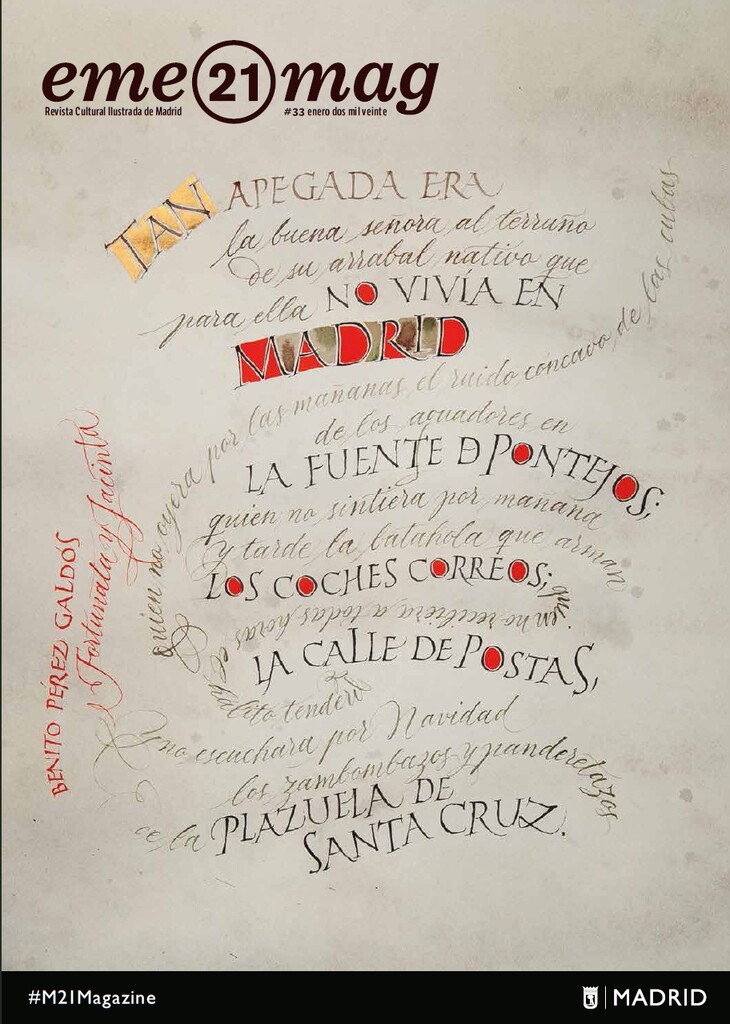 eme21mag
Revista Cultural Ilustrada de Madrid
#33 enero dos mil veinte
TAN APEGADA ERA
la buena señora al terruño
de su arrabal nativo que
para ella NO VIVÍA EN
MADRID
quien no oyera por las mañanas el ruido concavo de las cubas
de los aguadores en
LA FUENTE D PONTEJOS;
quien no sintiera por mañana
y tarde la batahola que arman
LOS COCHES CORREOS;
quien no recibiera a todas horas
el hálito tenderil de
LA CALLE DE POSTAS,
y no escuchara por Navidad
los zambombazos y panderetazos
de la PLAZUELA DE
SANTA CRUZ.
BENITO PÉREZ GALDÓS
Fortunata y Jacinta
#M21Magazine
MADRID